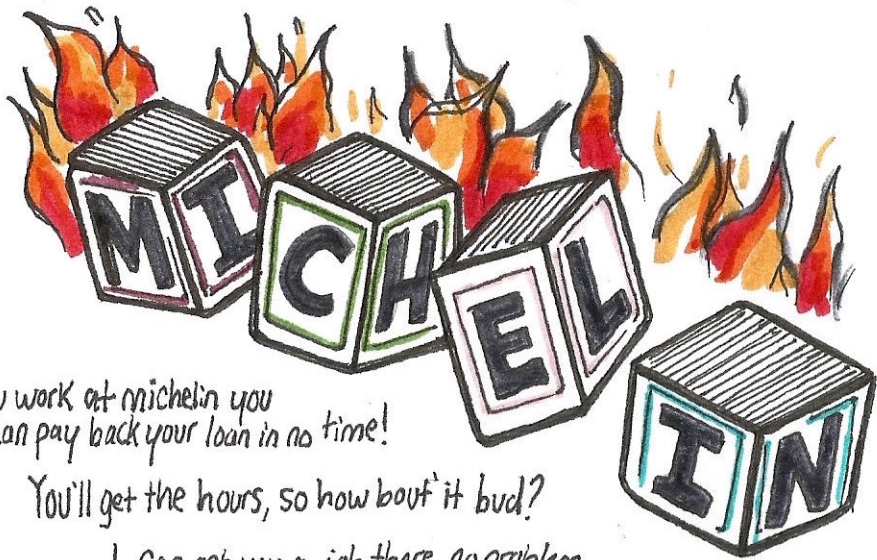 MICHELIN
work at michelin you
pay back your loan in no time!
You'll get the hours, so how bout it bud?
I can get you a job there, no problem